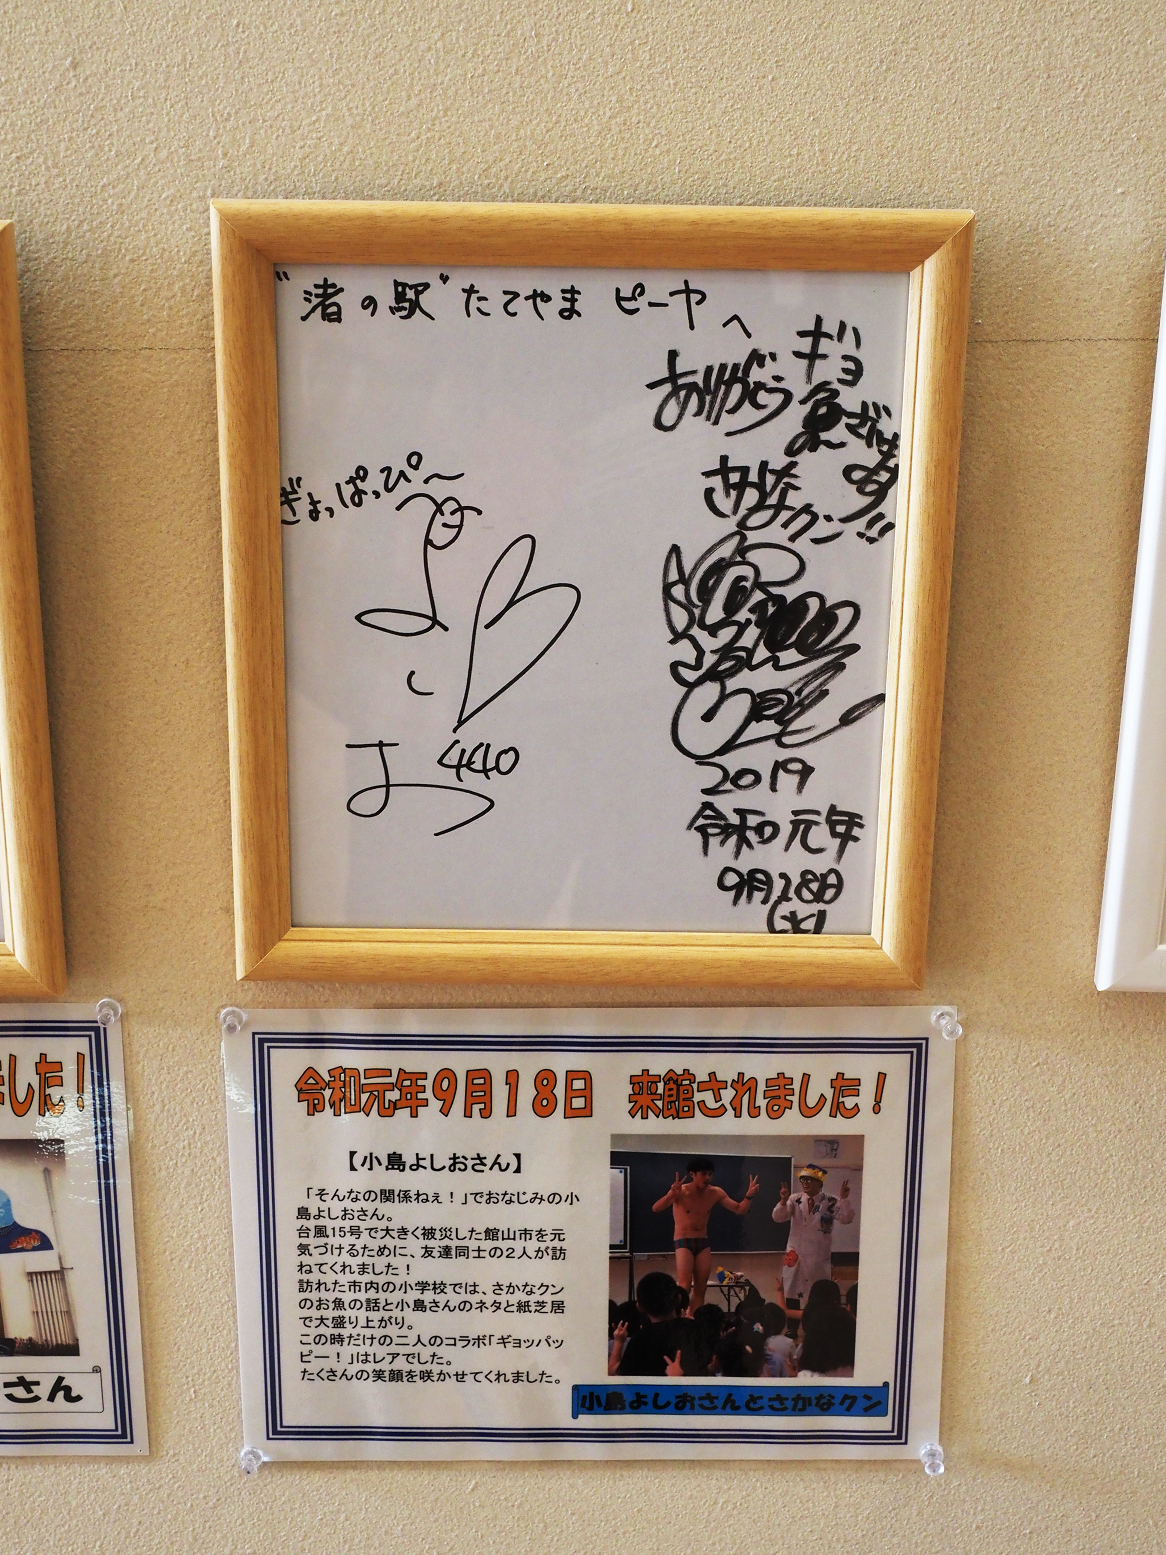 "渚の駅"たてやま ピーヤへ
ありがとう
ギョ
魚ざいます
さかなクン!!
ぎょっぱっぴ〜
440
2019
令和元年
9月18日
(水)
ました！
さん
令和元年９月１８日　来館されました！
【小島よしおさん】
「そんなの関係ねぇ！」でおなじみの小
島よしおさん。
台風15号で大きく被災した館山市を元
気づけるために、友達同士の２人が訪
ねてくれました！
訪れた市内の小学校では、さかなクン
のお魚の話と小島さんのネタと紙芝居
で大盛り上がり。
この時だけの二人のコラボ「ギョッパッ
ピー！」はレアでした。
たくさんの笑顔を咲かせてくれました。
小島よしおさんとさかなクン